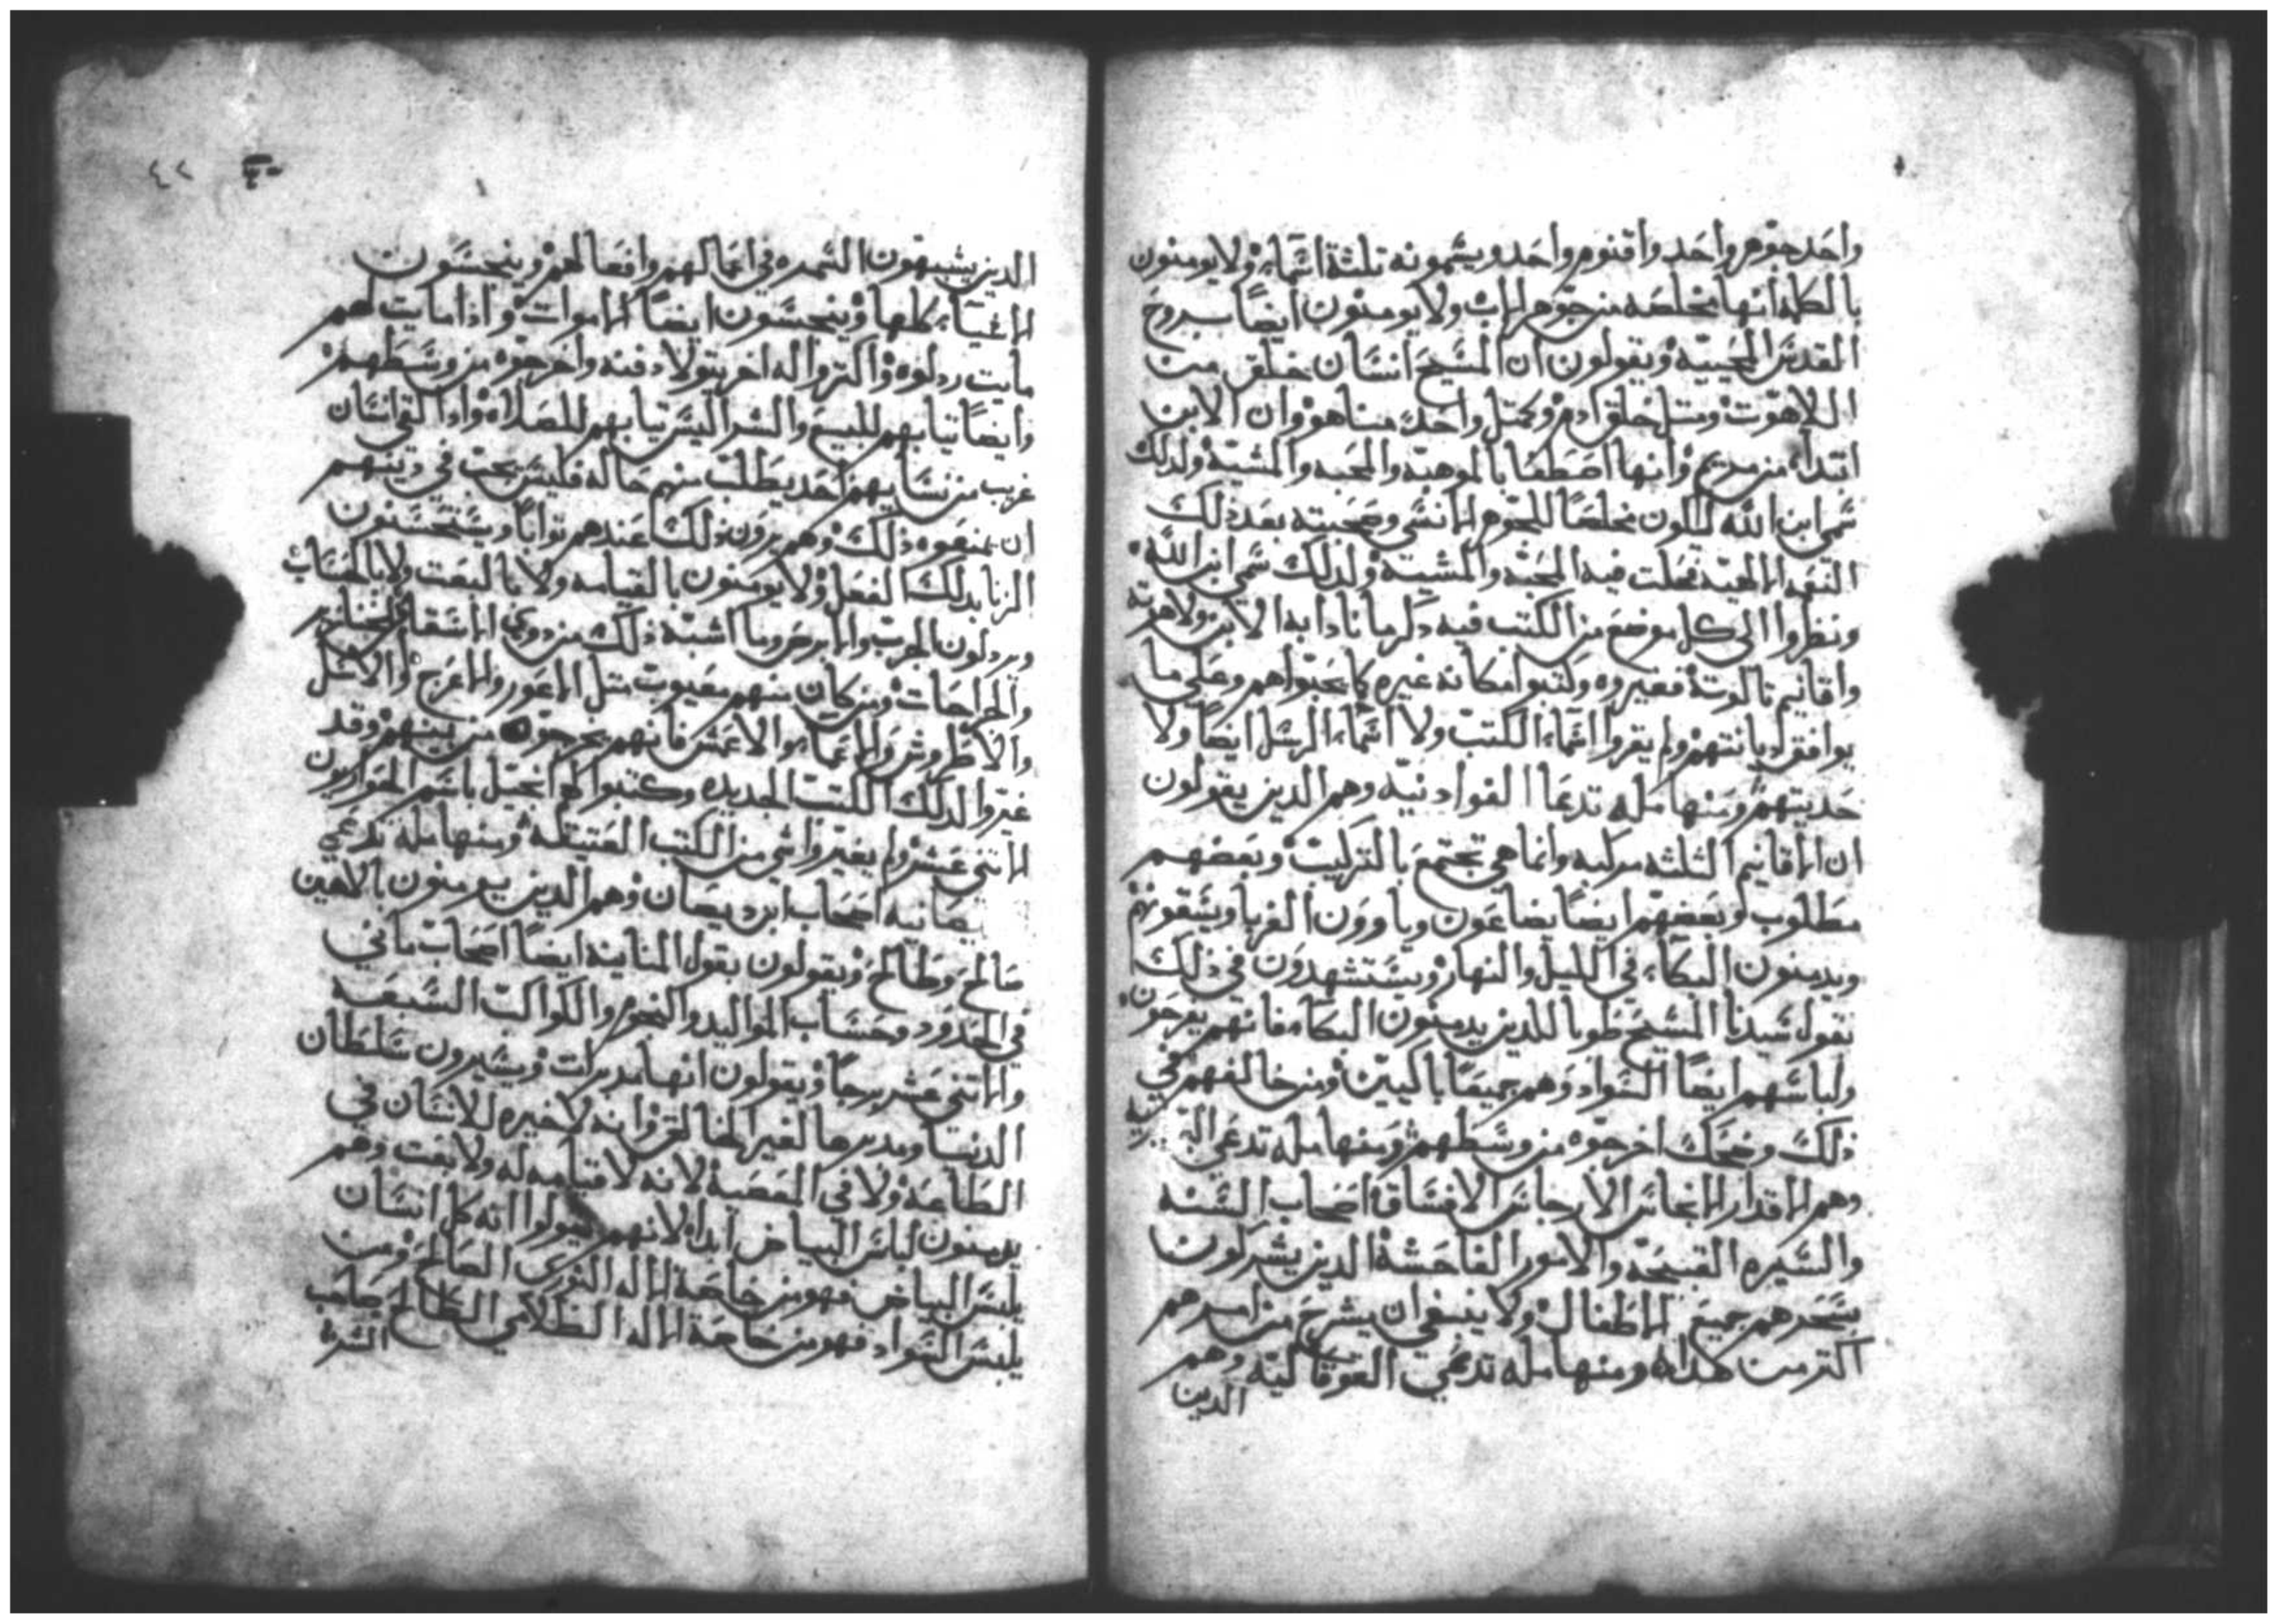 واحد جوهر واحد واقنوم واحد ويسمونه تلثة اسماء ولا يومنون
بالكلمه انها مخلصه من جوهر الاب ولا يومنون ايضًا بروح
القدس المحييه ويقولون ان المسيح انسان خلق من
اللاهوت ومتل خلق ادم وكمتل واحد مناهو وان الابن
ابتداه من مريم وانها اصطفا بالموهبه والمحبه والمشيه ولدلك
سمي ابن الله للكون مخلصًا للجوهر الانسي وصحبته بعد ذلك
النعمه الالهيه فحلت فيه المحبه والمشيه ولدلك سمي ابن الله
ونظروا الى كل موضع من الكتب فيه ذكر مانادا به الابن ولاهوته
واقانيم تالوته فغيروه وكتبوا مكانه غيره كما يحبوا هم وعلى ما
يوافق ديانتهم ولم يقروا اسماء الكتب ولا اسماء الرسل ايضا ولا
حديتهم ومنها مله تدعا الفوادنيه وهم الدين يقولون
ان الاقانيم الثلثه مركبه وانما هي تجتمع بالتركيب وبعضهم
مطلوب وبعضهم ايضًا يضاعون وياوون الغربا ويسقونهم
ويدمنون البكاء في الليل والنهار ويستشهدون في ذلك
بقول سيدنا المسيح طوبا للدين يدمنون البكا فانهم يفرحون
ولباسهم ايضًا السواد وهم جميعًا باكيين ومن خالفهم في
ذلك وضحك اخرجوه من وسطهم ومنها مله تدعى
وهم الاقدار الانجاس الارجاس الافساق اصحاب السنه
والسيره القبيحه والامور الفاحشه الدين يشركون
بسحرهم جميع الاطفال ولا ينبغي ان يشرح من امرهم
اكتر من هدا ومنها مله تدعي العوقاليه وهم
الدين
٤٢
الدين يشبهون السمره في اعمالهم وافعالهم وينجسون
الاشياء كلها وينجسون ايضًا الاموات وادا مايت لهم
مايت ردلوه واكتروا له اخر يتولا دفنه واخرجوه من وسطهم
وايضًا تيابهم للبيع والشرا ليس تيابهم للصلاه وادا لقي انسان
غريب من نسايهم احد يطلب منهم حاله فليس يجب في دينهم
ان يمنعوه ذلك وهم يرون ذلك عندهم توابًا ويستحسنون
الزنا بدلك الفعل ولا يومنون بالقيامه ولا بالبعت ولا بالحساب
ويردلون الجرب والابرص وما اشبه ذلك من دوي الاسقام
والجراحات ومن كان منهم معيوب متل الاعور والاعرج والاشل
والاطروش والاعما والاعمش فانهم يخرجوه من بينهم وقد
غيروا لدلك الكتب الجديده وكتبوا لهم انجيل باسم الحواريون
الاتني عشر ولم يغيروا شي من الكتب العتيقه ومنها مله تدعي
يصانيه اصحاب ابن ديصان وهم الدين يومنون بالاهين
صالح وطالح ويقولون بقول المنانيه ايضًا اصحاب ماني
في الحدود وحساب المواليد والنجوم والكواكب السبعه
والاتني عشر برجًا ويقولون انها مدبرات ويشيرون سلطان
الدنيا ومدبرها لغير الخالق وانه لا خيره للانسان في
الطاعه ولا في المعصيه لانه لا قيامه له ولا بعت وهم
يدمنون لباس البياض ابدا لانهم يقولوا انه كل انسان
يلبس البياض فهو من خاصة الاله النوري الصالح ومن
يلبس السواد فهو من خاصة الاله الظلامي الطالح صاحب
الشر